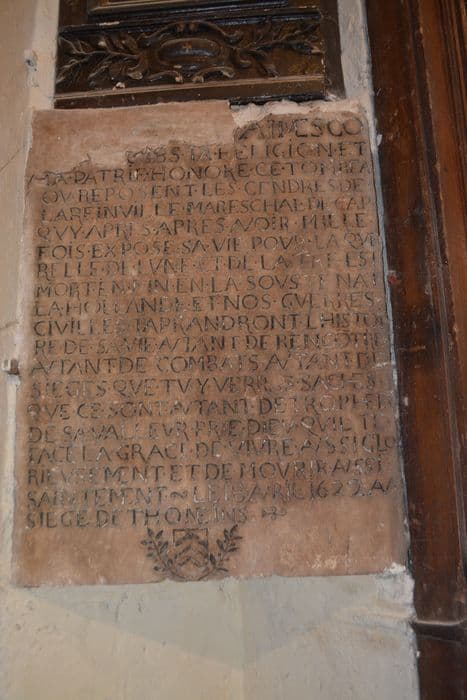 RELIGION ET
LA PATRIE HONORE CE TOMBEA
OV REPOSENT LES CENDRES DE
LAREINVILLE MARESCHAL DE CA
QVY APRES APRES AVOIR MILLE
FOIS EXPOSE SA VIE POVR LA QVE
RELLE DE LVNE ET DE LA TRE EST
MORT ENFIN EN LA SOVSTENA
LA HOLLANDE ET NOS GVERRES
CIVILLES TAPRANDRONT LHISTOI
RE DE SA VIE AVTANT DE RENCOTRE
AVTANT DE COMBATS AVTANT DE
SIEGES QVE TV Y VERRAS SACHES
QVE CE SONT AVTANT DE TROPHEE
DE SA VALLEVR PRIE DIEV QVIL TE
FACE LA GRACE DE VIVRE AVSSI GLO
RIEVSEMENT ET DE MOVRIR AVSSI
SAINTEMENT LE AVRIL 1622 AV
SIEGE DE THONEINS